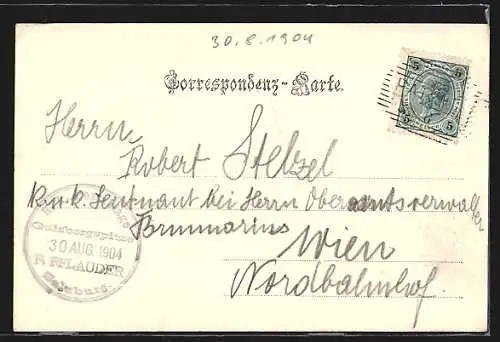 30.8.1904
Correspondenz-Karte.
5 5
5 5
Herrn
Robert Stelzel
k. u. k. Leutnant bei Herrn Oberamtsverwalter
Brummarius
Wien
Nordbahnhof.
Gaisbergspitze
30 AUG. 1904
PFLAUDER
Salzburg